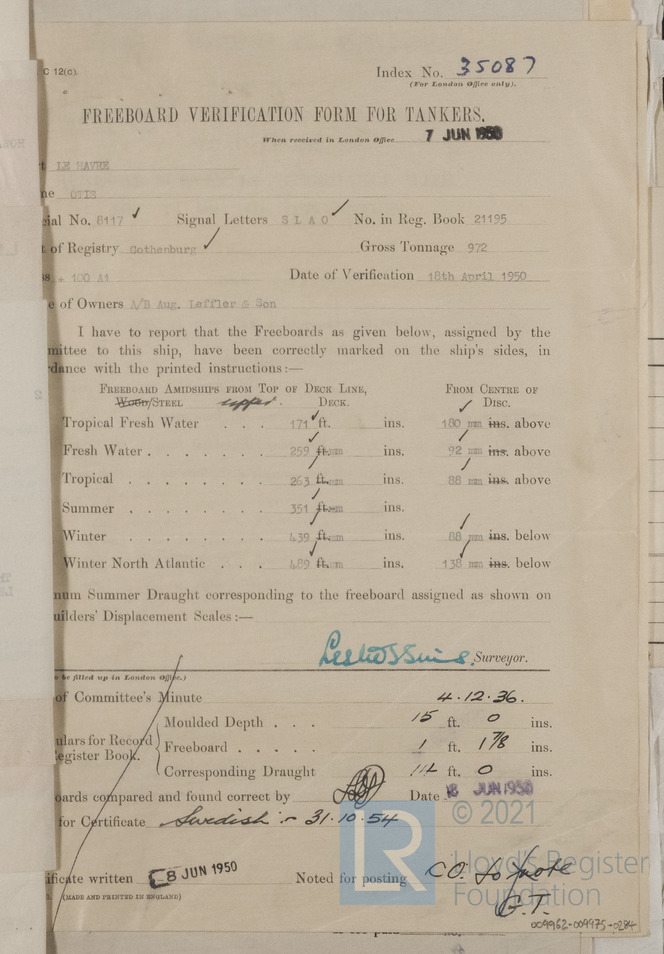 C 12(c).
Index No. 35087
(For London Office only).
FREEBOARD VERIFICATION FORM FOR TANKERS.
When received in London Office 7 JUN 1950
t LE HAVRE
ne OTIS
ial No. 8117 ✓ Signal Letters S L A O ✓ No. in Reg. Book 21195
t of Registry Gothenburg ✓ Gross Tonnage 972
ss + 100 A1 Date of Verification 18th April 1950
e of Owners A/B Aug. Leffler & Son
I have to report that the Freeboards as given below, assigned by the
mittee to this ship, have been correctly marked on the ship's sides, in
dance with the printed instructions:—
FREEBOARD AMIDSHIPS FROM TOP OF DECK LINE, FROM CENTRE OF
WOOD/STEEL upper. DECK. DISC.
Tropical Fresh Water . . . 171 ft. ins. 180 mm ins. above
Fresh Water . . . . . . . 259 ft. mm ins. 92 mm ins. above
Tropical . . . . . . . . 263 ft. mm ins. 88 mm ins. above
Summer . . . . . . . . 351 ft. mm ins.
Winter . . . . . . . . 439 ft. mm ins. 88 mm ins. below
Winter North Atlantic . . . 489 ft. mm ins. 138 mm ins. below
num Summer Draught corresponding to the freeboard assigned as shown on
uilders' Displacement Scales:—
Surveyor.
o be filled up in London Office.)
of Committee's Minute 4.12.36.
Moulded Depth . . . 15 ft. 0 ins.
ulars for Record
egister Book.
Freeboard . . . . . 1 ft. 1 7/8 ins.
Corresponding Draught 14 ft. 0 ins.
oards compared and found correct by Date JUN 1950
for Certificate Swedish :- 31.10.54
ificate written 8 JUN 1950 Noted for posting CO. to note
G.T.
(MADE AND PRINTED IN ENGLAND)
© 2021
LR
Lloyd's Register
Foundation
009962-009975-0284